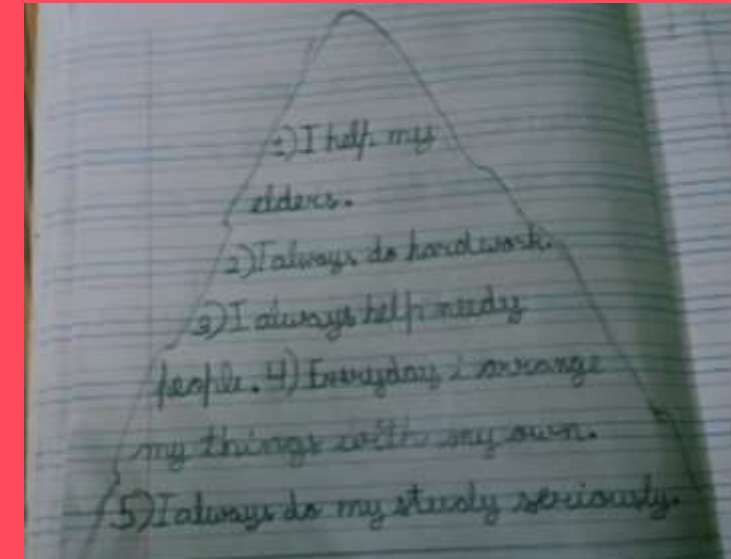 1) I help my
elders.
2) I always do hardwork.
3) I always help needy
people. 4) Everyday i arrange
my things with my own.
5) I always do my study seriously.